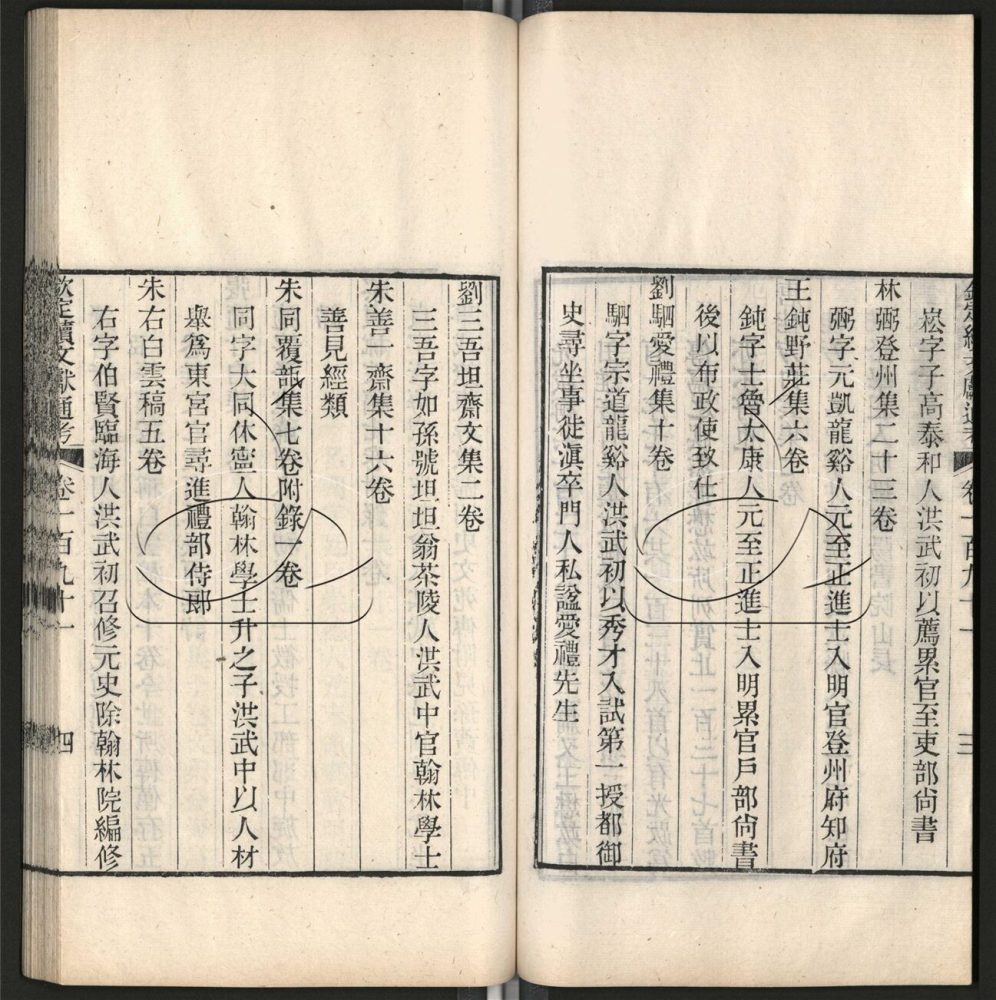 欽定續文獻通考 卷一百九十一 三
崧字子高泰和人洪武初以薦累官至吏部尚書
林弼登州集二十三卷
弼字元凱龍谿人元至正進士入明官登州府知府
王鈍野莊集六卷
鈍字士魯太康人元至正進士入明累官戶部尚書
後以布政使致仕
劉駟愛禮集十卷
駟字宗道龍谿人洪武初以秀才入試第一授都御
史尋坐事徙滇卒門人私諡愛禮先生
劉三吾坦齋文集二卷
三吾字如孫號坦坦翁茶陵人洪武中官翰林學士
朱善一齋集十六卷
善見經類
朱同覆瓿集七卷附錄一卷
同字大同休寧人翰林學士升之子洪武中以人材
舉爲東宮官尋進禮部侍郎
朱右白雲稿五卷
右字伯賢臨海人洪武初召修元史除翰林院編修
欽定續文獻通考 卷一百九十一 四